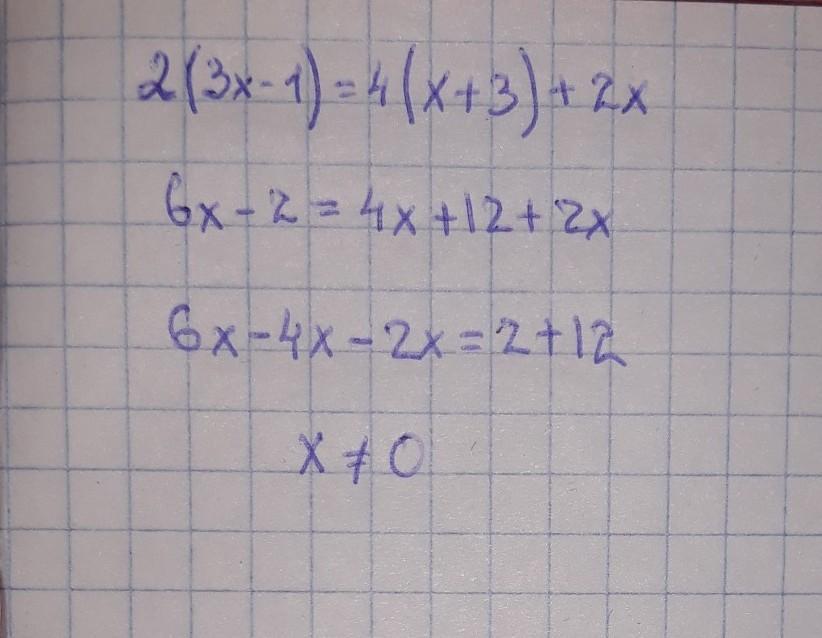 2(3x-1)=4(x+3)+2x
6x-2=4x+12+2x
6x-4x-2x=2+12
x≠0